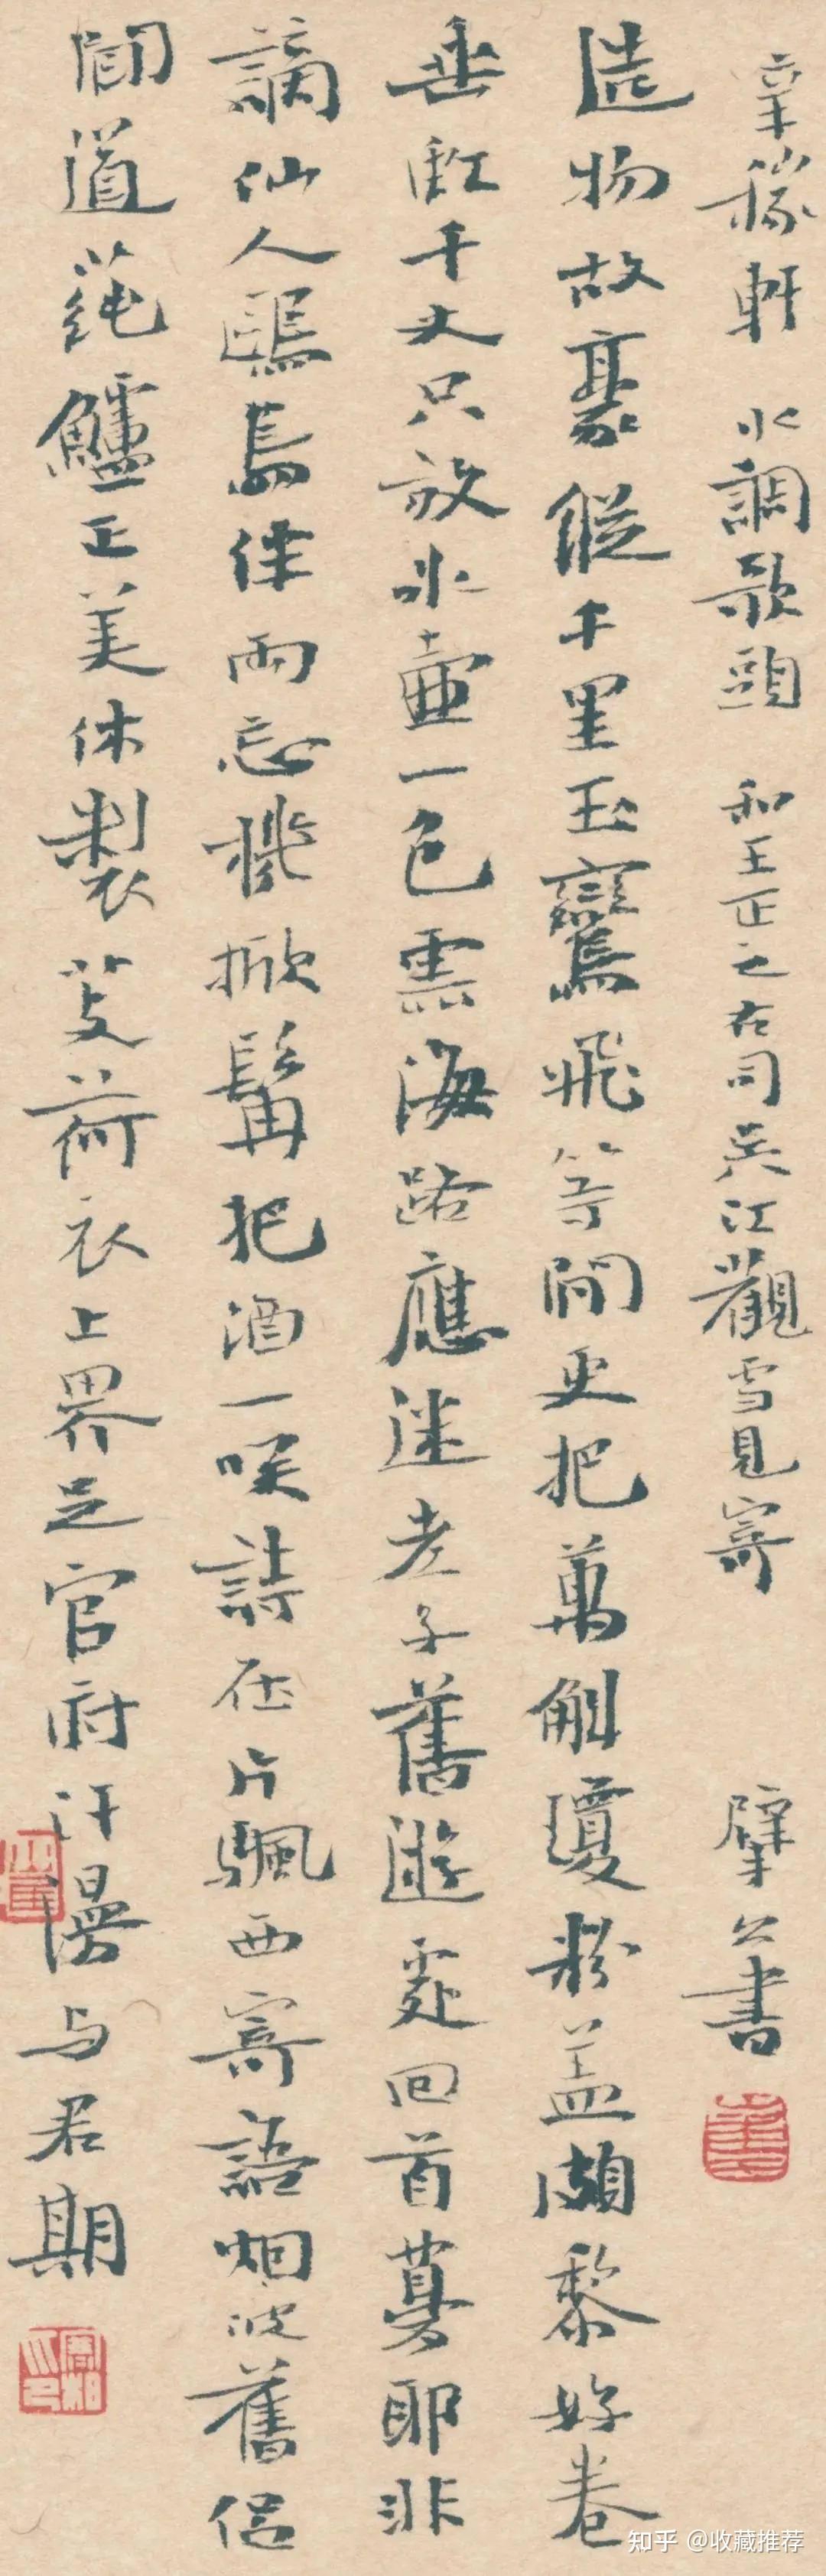 辛稼軒 水調歌頭 和王正之右司吳江觀雪見寄 擘公書
造物故豪縱千里玉鸞飛等閒更把萬斛瓊粉蓋頗黎好卷
垂虹千丈只放冰壺一色雲海路應迷老子舊遊處回首夢耶非
謫仙人鷗鳥伴兩忘機掀髯把酒一笑詩在片颿西寄語烟波舊侶
聞道蓴鱸正美休製芰荷衣上界足官府汗漫與君期
知乎 @收藏推荐